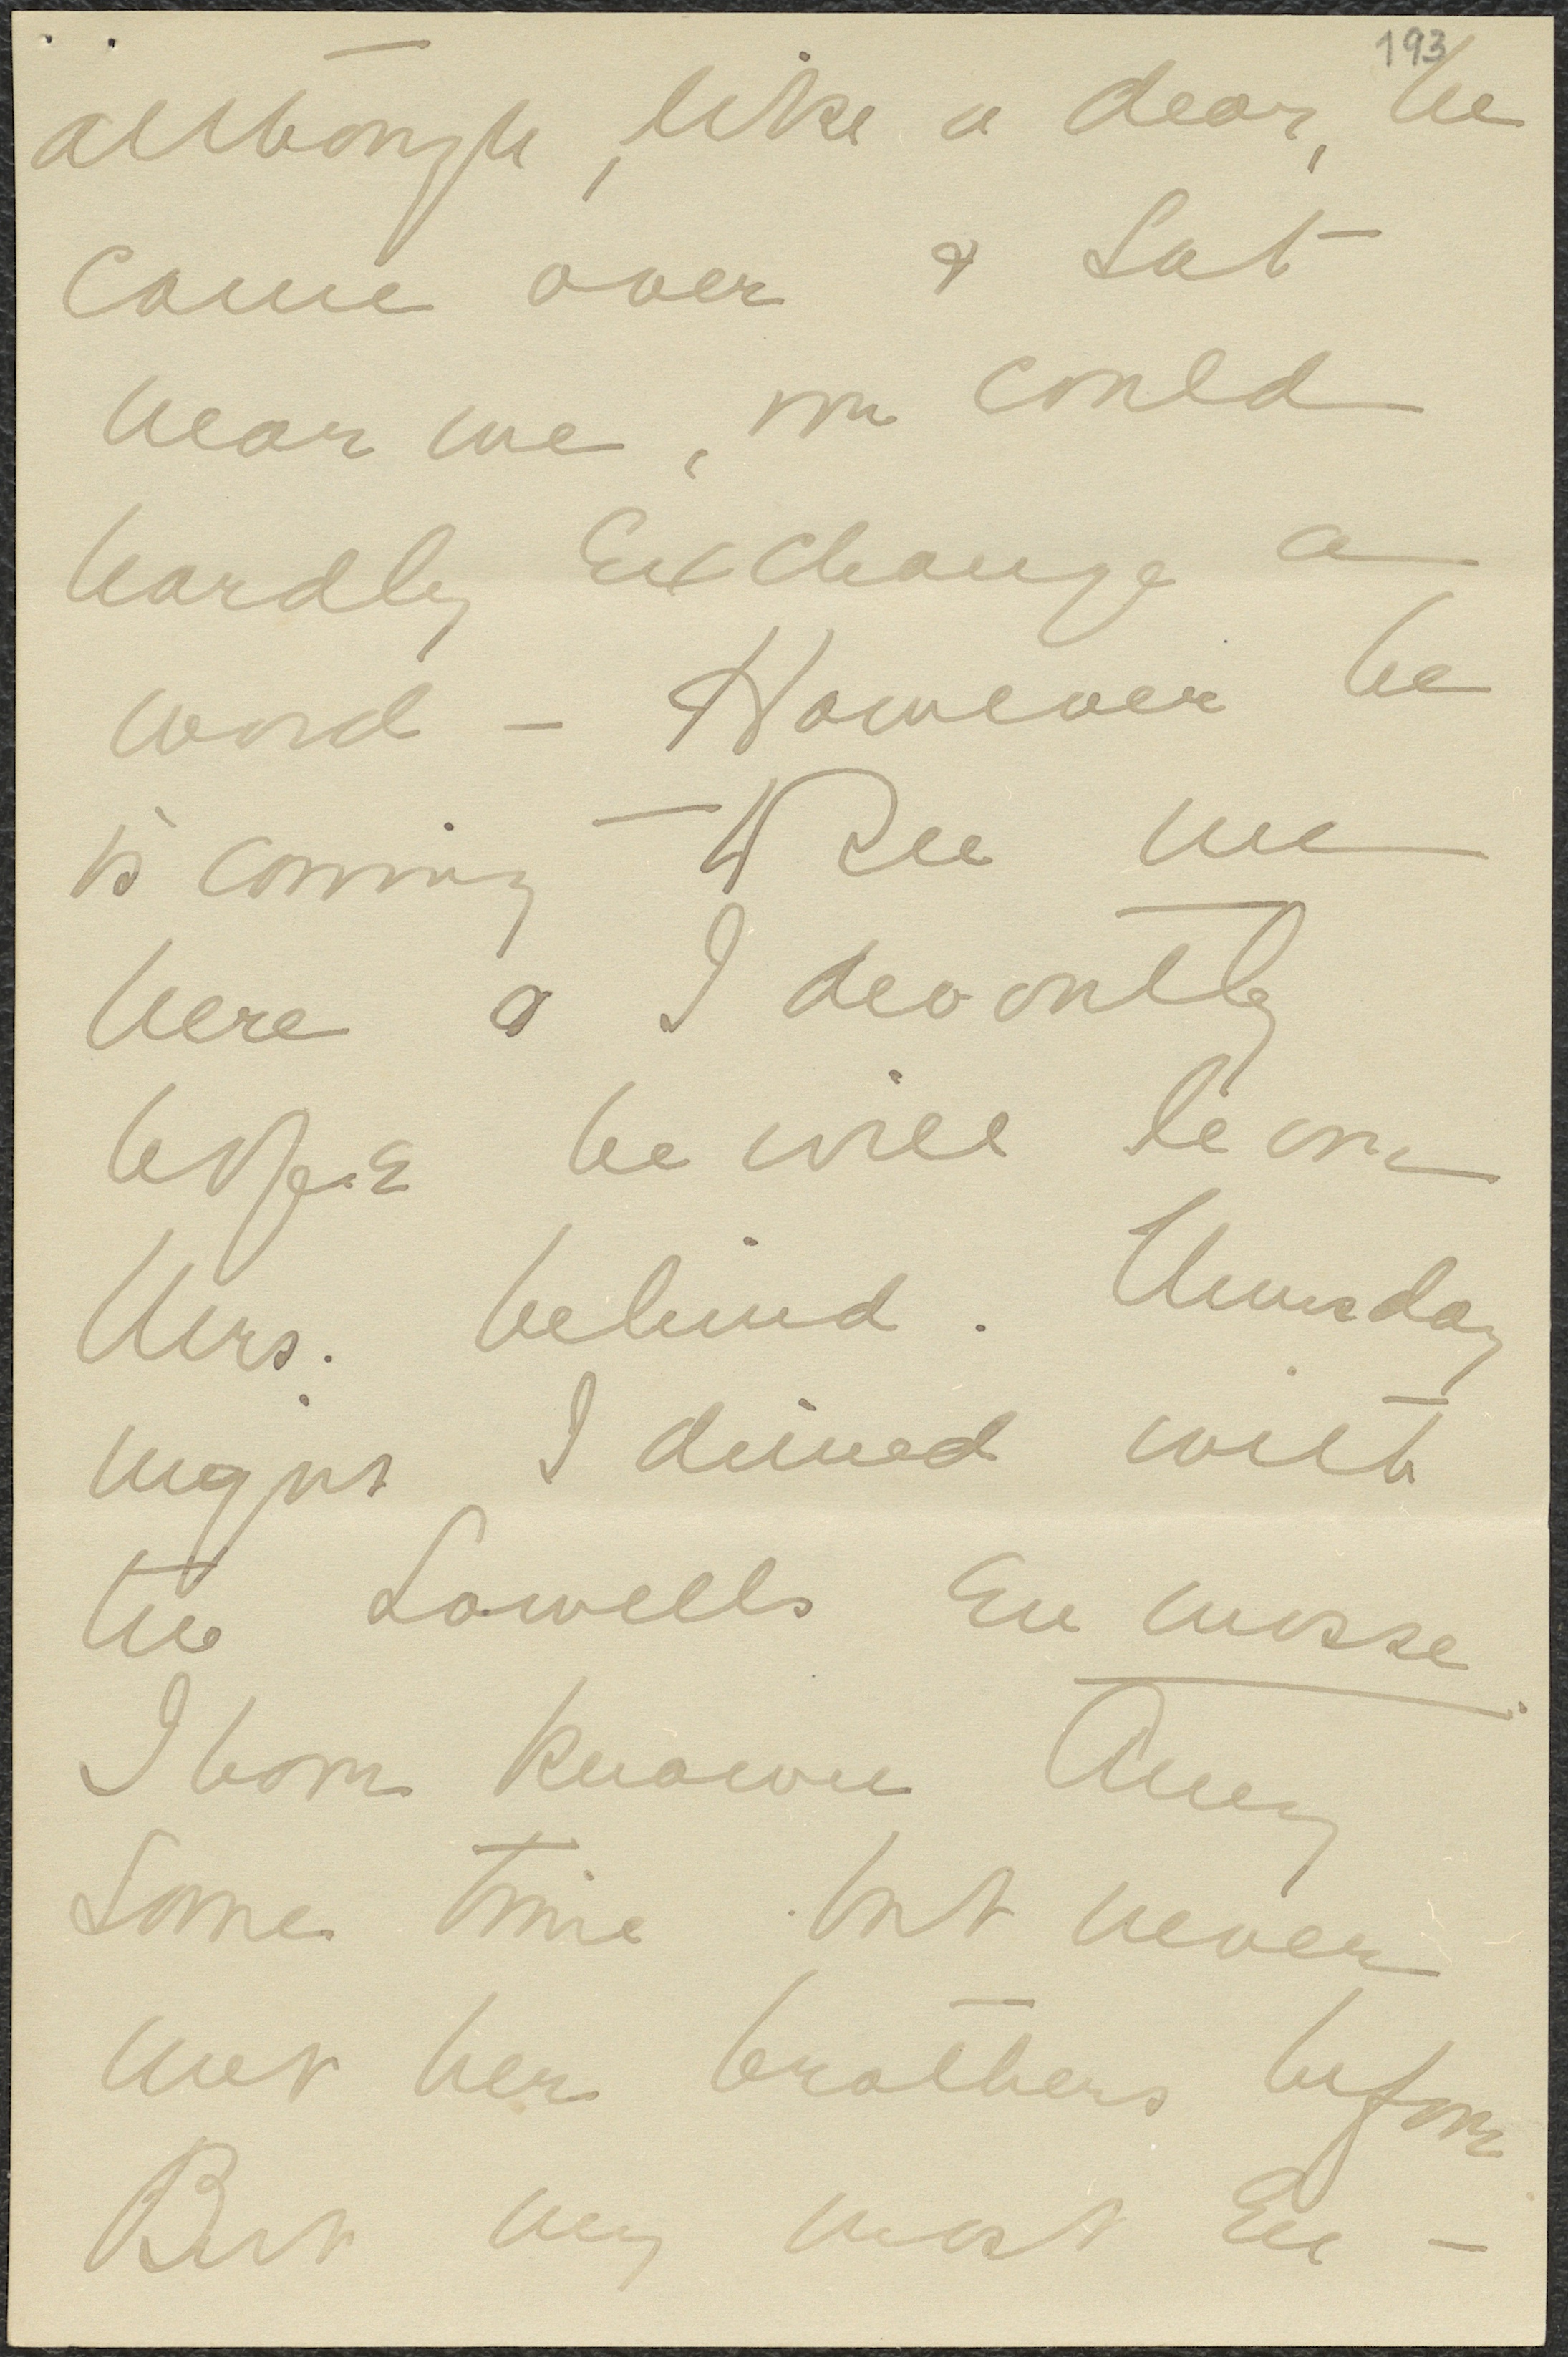 193
although, like a dear, he
came over & sat
near me, we could
hardly exchange a
word – However he
is coming to see me
here & I devoutly
hope he will leave
Mrs. behind. Thursday
night I dined with
the Lowells en masse.
I have known Amy
some time but never
met her brothers before
But my most en –